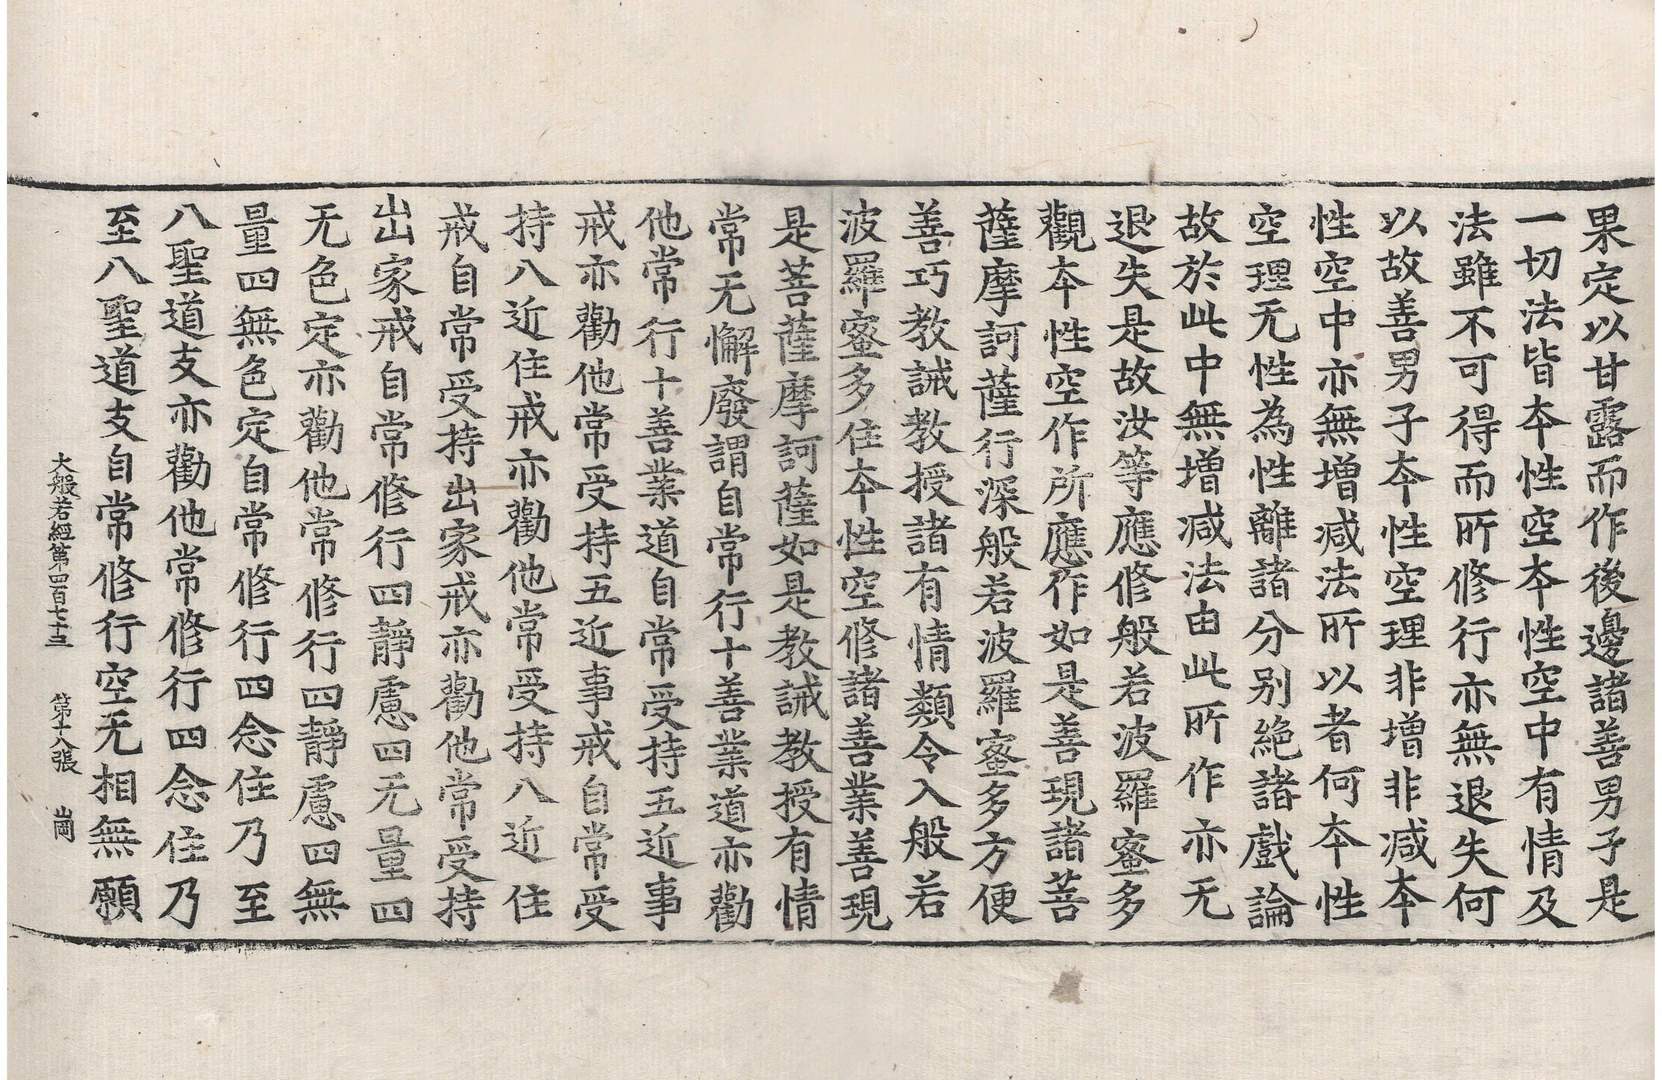 果定以甘露而作後邊諸善男子是
一切法皆本性空本性空中有情及
法雖不可得而所修行亦無退失何
以故善男子本性空理非增非減本
性空中亦無增減法所以者何本性
空理无性為性離諸分別絶諸戲論
故於此中無增減法由此所作亦无
退失是故汝等應修般若波羅蜜多
觀本性空作所應作如是善現諸菩
薩摩訶薩行深般若波羅蜜多方便
善巧教誡教授諸有情類令入般若
波羅蜜多住本性空修諸善業善現
是菩薩摩訶薩如是教誡教授有情
常无懈廢謂自常行十善業道亦勸
他常行十善業道自常受持五近事
戒亦勸他常受持五近事戒自常受
持八近住戒亦勸他常受持八近住
戒自常受持出家戒亦勸他常受持
出家戒自常修行四靜慮四无量四
无色定亦勸他常修行四靜慮四無
量四無色定自常修行四念住乃至
八聖道支亦勸他常修行四念住乃
至八聖道支自常修行空无相無願
大般若經第四百七十三 第十八張 崗